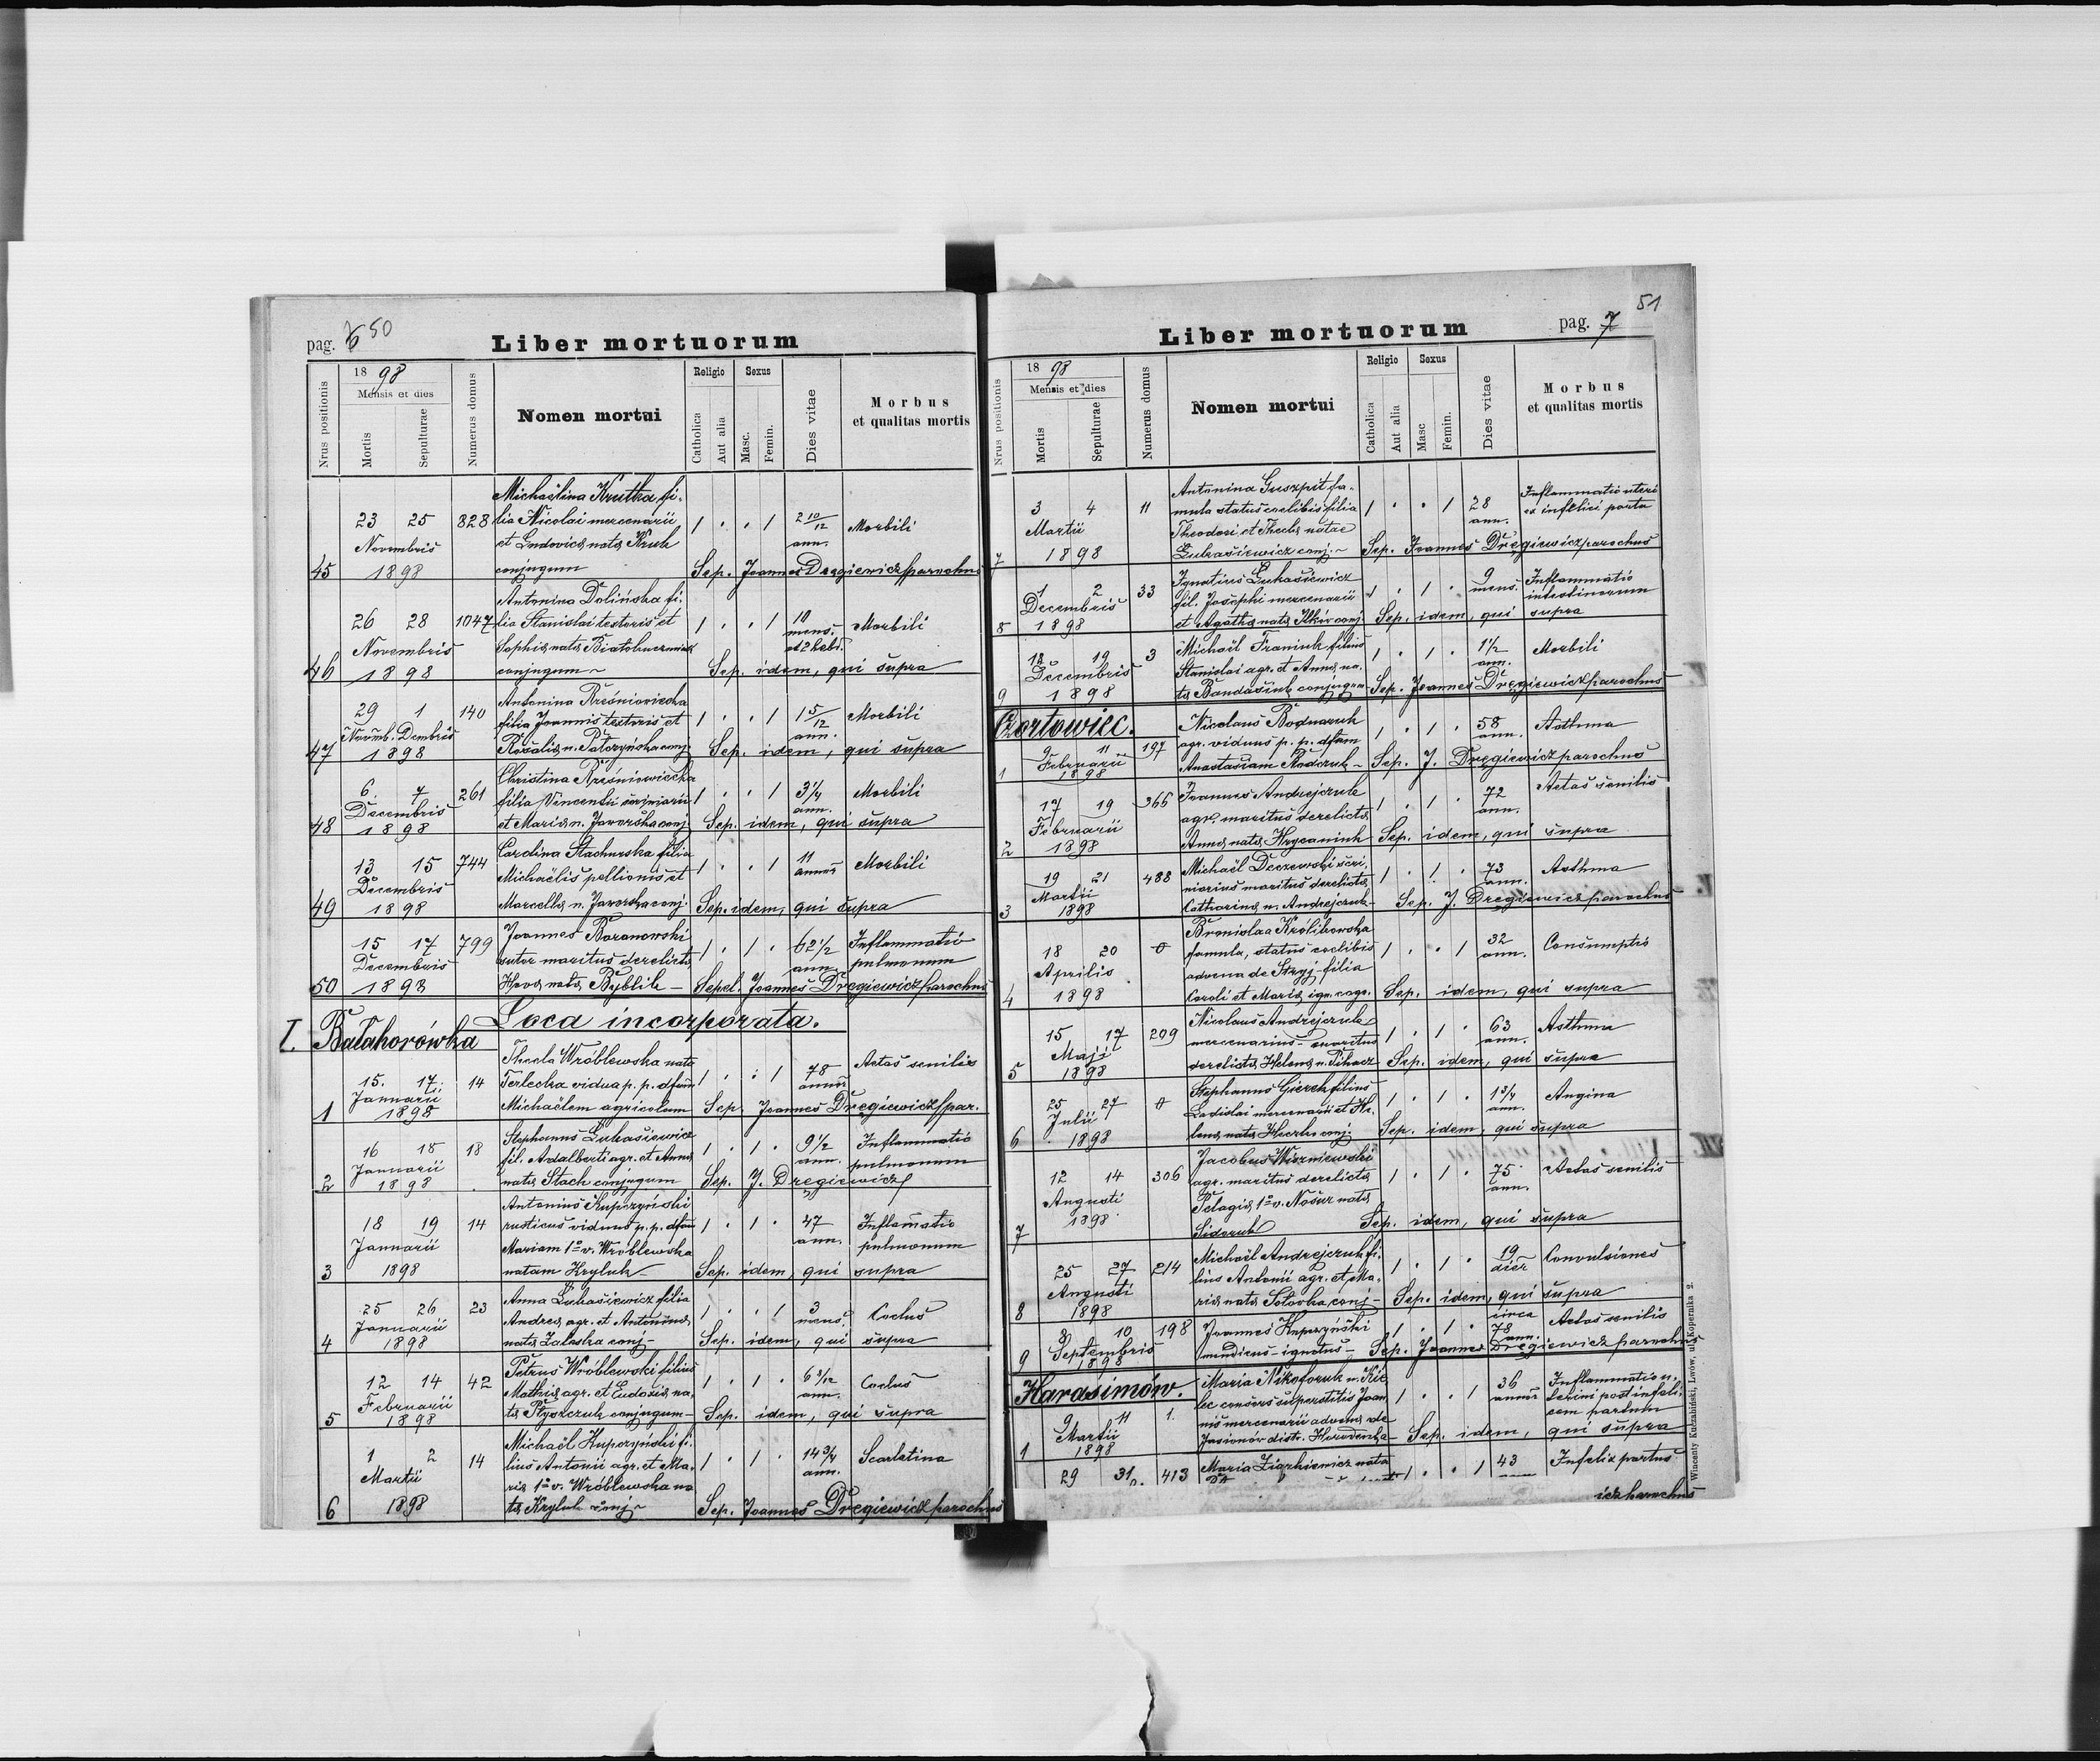 pag. 6 50
Liber mortuorum
Nrus positionis
18 98
Mensis et dies
Mortis
Sepulturae
Numerus domus
Nomen mortui
Religio
Catholica
Aut alia
Sexus
Masc.
Femin.
Dies vitae
Morbus
et qualitas mortis
45 23 25 Novembris 1898 828
Michaëlina Krutka fi-
lia Nicolai mercenarii
et Ludovica nata Kruk
conjugum
1 . . 1 2 10/12 ann. Morbili
Sep. Joannes Dręgiewicz parochus
46 26 28 Novembris 1898 1047
Antonina Dolińska fi-
lia Stanislai textoris et
Sophia nata
conjugum
1 . . 1 10 mens. et 2 hebd. Morbili
Sep. idem, qui supra
47 29 1 Novemb. Dembris 1898 140
Antonina Rześniowiecka
filia Joannis textoris et
Rosalia n. Patczyńska conj.
1 . . 1 1 5/12 ann. Morbili
Sep. idem, qui supra
48 6. 7 Decembris 1898 261
Christina Rześniowiecka
filia Vincentii
et Maria n. Jaworska conj.
1 . . 1 3 1/4 ann. Morbili
Sep. idem, qui supra
49 13 15 Decembris 1898 744
Carolina Stachurska filia
Michaëlis pellionis et
Marcella n. Jaworska conj.
1 . . 1 11 annor. Morbili
Sep. idem, qui supra
50 15 17 Decembris 1898 799
Joannes Baranowski
sutor maritus derelicta
nata Byblik
1 . 1 . 62 1/2 ann. Inflammatio
pulmonum
Sepel. Joannes Dręgiewicz parochus
Loca incorporata.
I. Bałahorówka
1 15. 17. Januarii 1898 14
Thecla Wróblewska nata
Terlecka vidua p. p. dfum
Michaëlem agricolam
1 . . 1 78 annor. Aetas senilis
Sep. Joannes Dręgiewicz par.
2 16 18 Januarii 1898 18
Stephanus Łukasiewicz
fil. Adalberti agr. et Anna
nata Stach conjugum
1 . 1 . 9 1/2 ann. Inflammatio
pulmonum
Sep. J. Dręgiewicz
3 18 19 Januarii 1898 14
Antonius Kupczyński
rusticus viduus p. p. dfam
Mariam 1º v. Wróblewska
natam Kryluk
1 . 1 . 47 ann. Inflamatio
pulmonum
Sep. idem, qui supra
4 25 26 Januarii 1898 23
Anna Łukasiewicz filia
Andrea agr. et Antonina
nata Zaleska conj.
1 . . 1 3 mens. Coclus
Sep. idem, qui supra
5 12 14 Februarii 1898 42
Petrus Wróblewski filius
Mathia agr. et Eudoxia na-
ta conjugum
1 . 1 . 6 3/12 ann. Coclus
Sep. idem, qui supra
6 1 2 Martii 1898 14
Michaël Kupczyński fi-
lius Antonii agr. et Ma-
ria 1º v. Wróblewska na-
ta Kryluk conj.
1 . 1 . 14 3/4 ann. Scarlatina
Sep. Joannes Dręgiewicz parochus
51
pag. 7
Liber mortuorum
Nrus positionis
18 98
Mensis et dies
Mortis
Sepulturae
Numerus domus
Nomen mortui
Religio
Catholica
Aut alia
Sexus
Masc
Femin.
Dies vitae
Morbus
et qualitas mortis
7 3 4 Martii 1898 11
Antonina Guszpit fa-
mula status coelibis filia
Theodori et Thecla natae
Łukasiewicz conj.
1 . . 1 28 ann. Inflammatio uteri
ex infelici partu
Sep. Joannes Dręgiewicz parochus
8 1 2 Decembris 1898 33
Ignatius Łukasiewicz
fil. Josephi mercenarii
et Agatha nata Ilków conj.
1 . 1 . 9 mens. Inflammatio
intestinorum
Sep. idem, qui supra
9 18 19 Decembris 1898 3
Michaël Franiuk filius
Stanislai agr. et Anna na-
ta Bandasiuk conjugum
1 . 1 . 1 1/2 ann. Morbili
Sep. Joannes Dręgiewicz parochus
Czortowiec.
1 9 11 Februarii 1898 197
Nicolaus Bodnaruk
agr. viduus p. p. dfam
Anastasiam
1 . 1 . 58 ann. Asthma
Sep. J. Dręgiewicz parochus
2 17 19 Februarii 1898 366
Joannes Andrejczuk
agr. maritus derelicta
Anna nata Hrycaniuk
1 . 1 . 72 ann. Aetas senilis
Sep. idem, qui supra
3 19 21 Martii 1898 488
Michaël Deczewski
maritus derelicta
Catharina n. Andrejczuk
1 . 1 . 73 ann. Asthma
Sep. J. Dręgiewicz parochus
4 18 20 Aprilis 1898 0
Bronislaa Królikowska
famula, status coelibis
advena de Stryj filia
Caroli et Maria ign. cogn.
1 . . 1 32 ann. Consumptio
Sep. idem, qui supra
5 15 17 Maji 1898 209
Nicolaus Andrejczuk
mercenarius maritus
derelicta Helena n. Pihacz
1 . 1 . 63 ann. Asthma
Sep. idem, qui supra
6 25 27 Julii 1898 0
Stephanus Gierek filius
Ladislai mercenarii et He-
lena nata conj.
1 . 1 . 1 3/4 ann. Angina
Sep. idem, qui supra
7 12 14 Augusti 1898 306
Jacobus Wiszniewski
agr. maritus derelicta
Pelagia 1º v. Nosur nata
Sidoruk
1 . 1 . 75 ann. Aetas senilis
Sep. idem, qui supra
8 25 27 Augusti 1898 214
Michaël Andrejczuk fi-
lius Antonii agr. et Ma-
ria nata Sotovka conj.
1 . 1 . 19 dier. Convulsiones
Sep. idem, qui supra
9 8 10 Septembris 1898 198
Joannes Kupczyński
mendicus ignotus
1 . 1 . circa 78 ann. Aetas senilis
Sep. Joannes Dręgiewicz parochus
Harasimów.
1 9 11 Martii 1898 1.
Maria Nikoforuk n. Kie-
lec consors superstitis Joan-
nis mercenarii advena de
Jasionów distr. Horodenka
1 . . 1 36 annor. Inflammatio u-
terini post infeli-
cem partum
Sep. idem, qui supra
29 31 413
Maria Ziarkiewicz nata
1 . . 1 43 Infelix partus
icz parochus
Wincenty Kuczabiński, Lwów, ul. Kopernika 2.